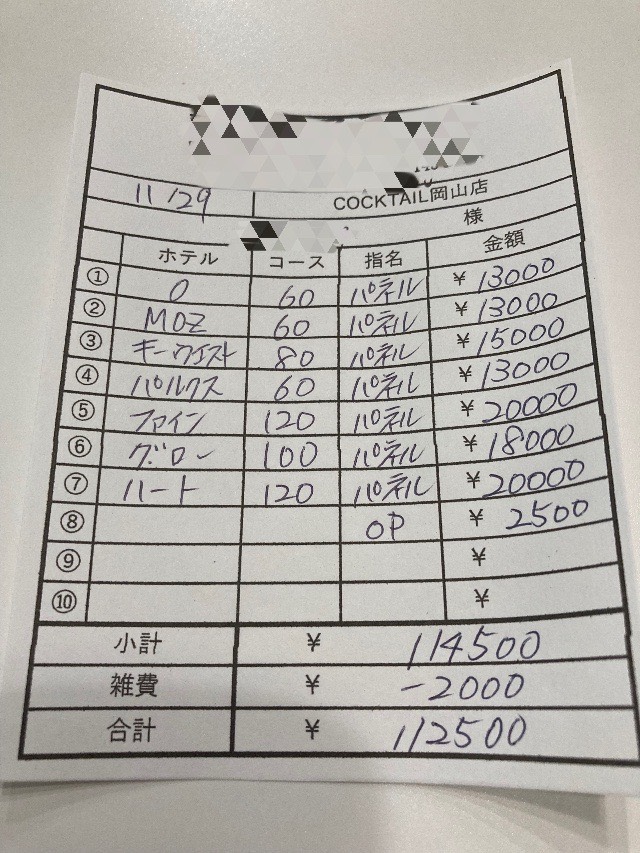 11/29 COCKTAIL岡山店
様
ホテル コース 指名 金額
① O 60 パネル ¥13000
② MOZ 60 パネル ¥13000
③ キーウエスト 80 パネル ¥15000
④ パルクス 60 パネル ¥13000
⑤ ファイン 120 パネル ¥20000
⑥ グロー 100 パネル ¥18000
⑦ ハート 120 パネル ¥20000
⑧ OP ¥2500
⑨ ¥
⑩ ¥
小計 ¥ 114500
雑費 ¥ -2000
合計 ¥ 112500